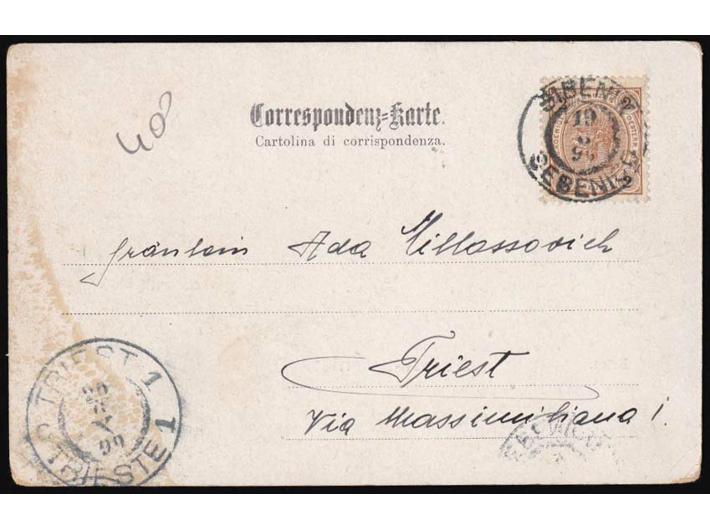 408
Correspondenz=Karte.
Cartolina di corrispondenza.
ŠIBENIK
19
SEBENICO
Fräulein Ada Millossovich
Triest
Via Massimiliana 1.
TRIEST 1
TRIESTE 1